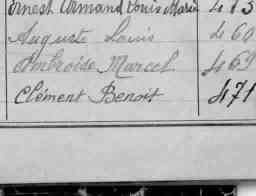 Ernest Armand Louis Marie 413
Auguste Louis 460
Ambroise Marcel 469
Clément Benoit 471